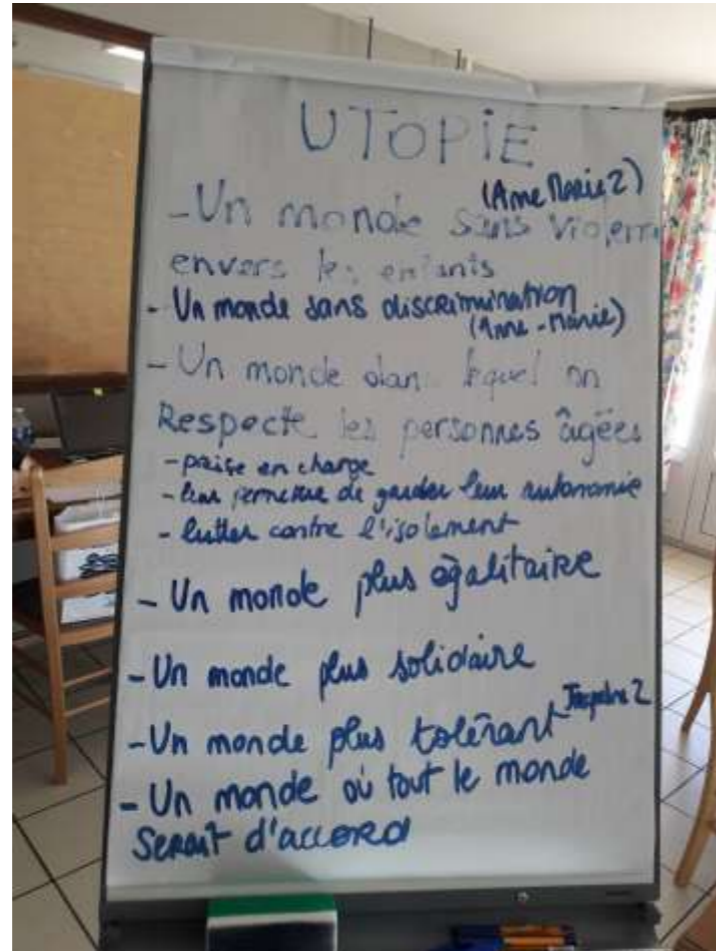 UTOPiE
(Anne Marie 2)
- Un monde sans violence
envers les enfants
- Un monde sans discrimination
(Anne-Marie)
- Un monde dans lequel on
Respecte les personnes âgées
- prise en charge
- leur permettre de garder leur autonomie
- lutter contre l'isolement
- Un monde plus égalitaire
- Un monde plus solidaire
- Un monde plus tolérant
- Un monde où tout le monde
serait d'accord